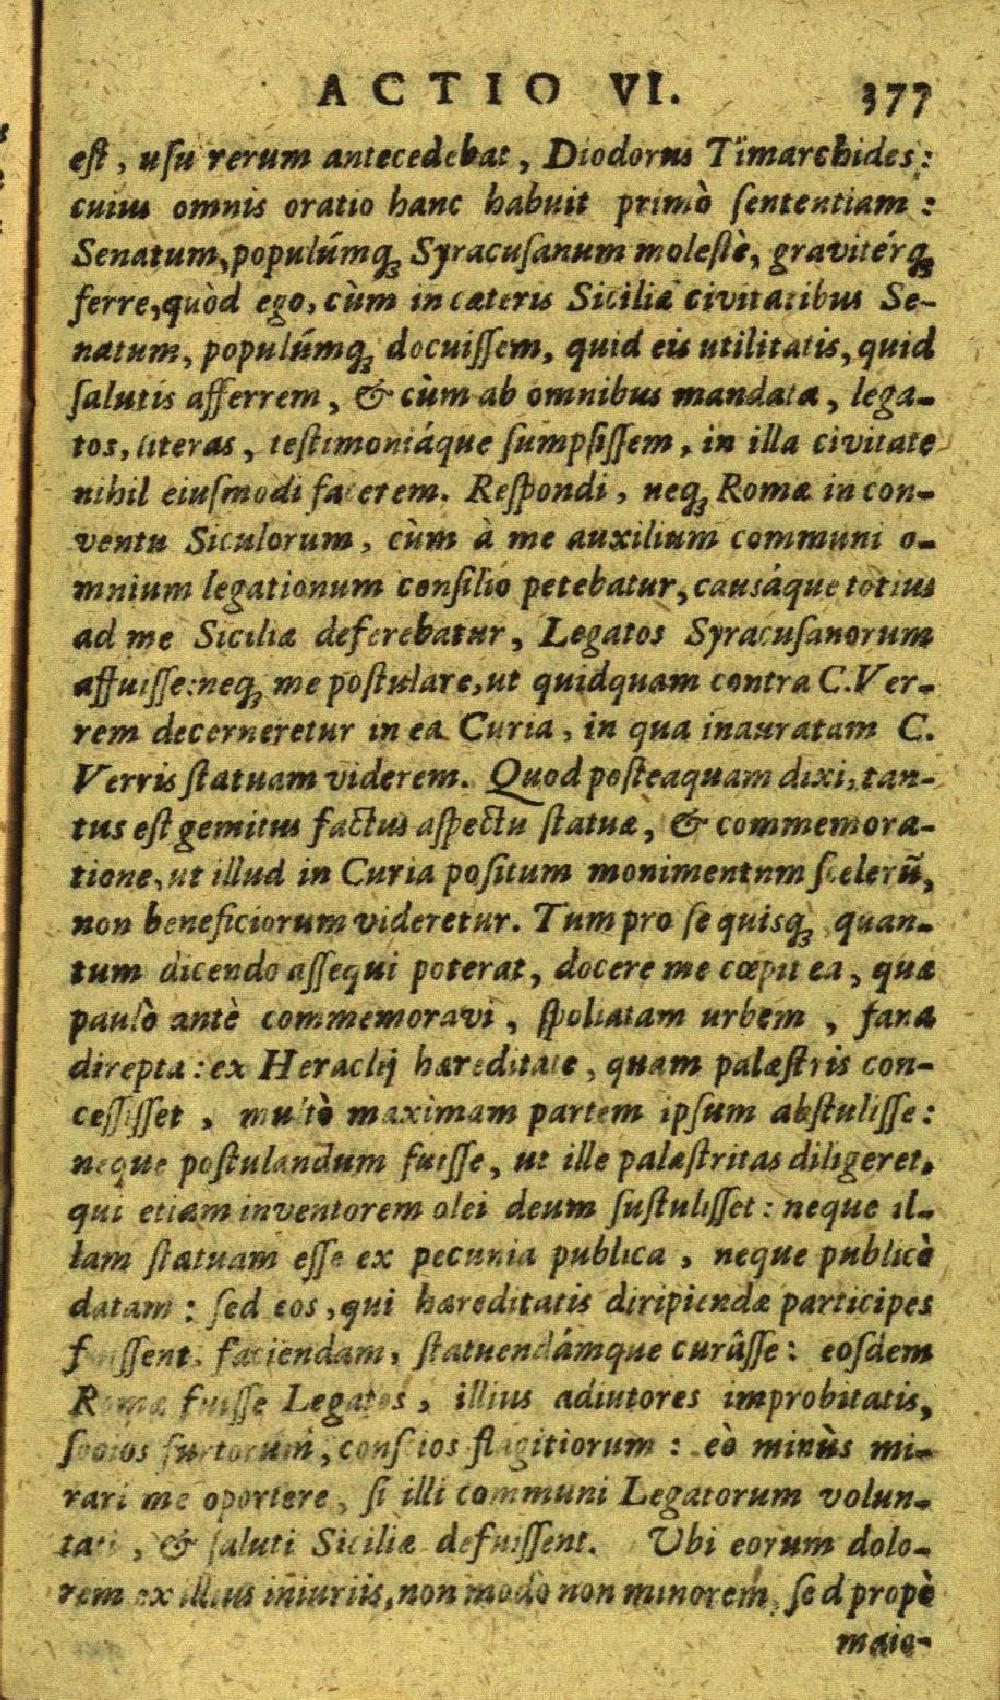 ACTIO VI. 377
eſt, uſu rerum antecedebat, Diodorus Timarchides:
cuius omnis oratio hanc habuit primò ſententiam:
Senatum, populúmq; Syracuſanum moleſtè, gravitérq;
ferre, quòd ego, cùm in cæteris Siciliæ civitatibus Se-
natum, populúmq; docuiſſem, quid eis utilitatis, quid
ſalutis afferrem, & cùm ab omnibus mandata, lega-
tos, literas, teſtimoniáque ſumpſiſſem, in illa civitate
nihil eiuſmodi facerem. Reſpondi, neq; Romæ in con-
ventu Siculorum, cùm à me auxilium communi o-
mnium legationum conſilio petebatur, causáque totius
ad me Siciliæ deferebatur, Legatos Syracuſanorum
affuiſſe: neq; me poſtulare, ut quidquam contra C. Ver-
rem decerneretur in ea Curia, in qua inauratam C.
Verris ſtatuam viderem. Quod poſteaquam dixi, tan-
tus eſt gemitus factus aſpectu ſtatuæ, & commemora-
tione, ut illud in Curia poſitum monimentnm ſcelerũ,
non beneficiorum videretur. Tum pro ſe quisq; quan-
tum dicendo aſſequi poterat, docere me cœpit ea, quæ
paulò antè commemoravi, ſpoliatam urbem, fana
direpta: ex Heraclij hæreditate, quam palæſtris con-
ceſſiſſet, multò maximam partem ipſum abſtuliſſe:
neque poſtulandum fuiſſe, ut ille palæſtritas diligeret,
qui etiam inventorem olei deum ſuſtuliſſet: neque il-
lam ſtatuam eſſe ex pecunia publica, neque publicè
datam: ſed eos, qui hæreditatis diripiendæ participes
fuiſſent, faciendam, ſtatuendámque curâſſe: eoſdem
Romæ fuiſſe Legatos, illius adiutores improbitatis,
ſocios furtorum, conſcios flagitiorum: eò minùs mi-
rari me oportere, ſi illi communi Legatorum volun-
tati, & ſaluti Siciliæ defuiſſent. Ubi eorum dolo-
rem ex illius iniuriis, non modò non minorem, ſed propè
maio-